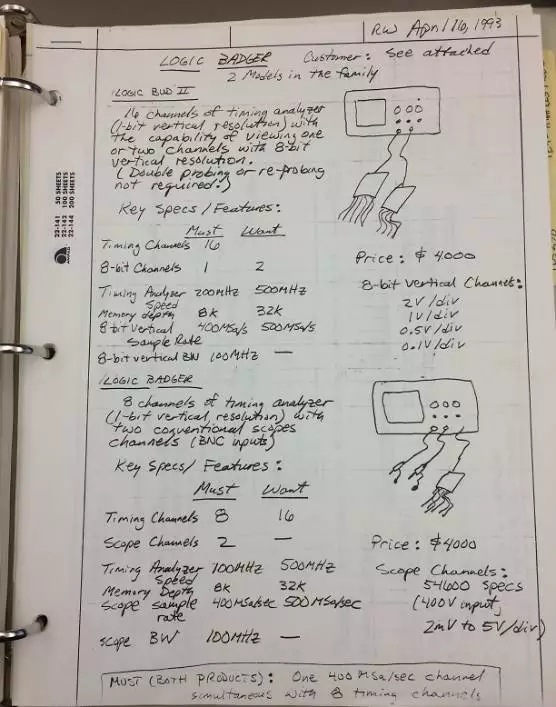 RW April 16, 1993
LOGIC BADGER Customer: See attached
2 Models in the family
LOGIC BUD II
16 channels of timing analyzer
(1-bit vertical resolution) with
the capability of viewing one
or two channels with 8-bit
vertical resolution.
(Double probing or re-probing
not required!)
Key Specs / Features:
Must Want
Timing Channels 16
8-bit Channels 1 2
Timing Analyzer 200MHz 500MHz
Speed
Memory depth 8K 32K
8 bit vertical 400MSa/s 500MSa/s
Sample Rate
8-bit vertical BW 100MHz —
Price: $4000
8-bit vertical Channel:
2V/div
1V/div
0.5V/div
0.1V/div
22-141 50 SHEETS
22-142 100 SHEETS
22-144 200 SHEETS
LOGIC BADGER
8 channels of timing analyzer
(1-bit vertical, resolution) with
two conventional scopes
channels (BNC inputs)
Key Specs/ Features:
Must Want
Timing Channels 8 16
Scope Channels 2 —
Timing Analyzer 100MHz 500MHz
Speed
Memory Depth 8K 32K
Scope sample 400MSa/sec 500MSa/sec
rate
scope BW 100MHz —
Price: $4000
Scope Channels:
54600 specs
(400V input,
2mV to 5V/div)
MUST (BOTH PRODUCTS): One 400 MSa/sec channel
simultaneous with 8 timing channels